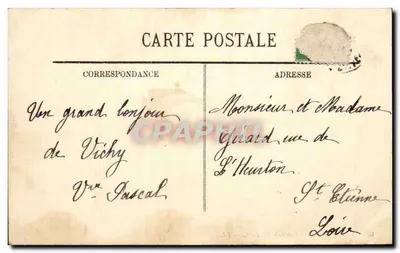 CARTE POSTALE
CORRESPONDANCE
Un grand bonjour
de Vichy
Vve Pascal
ADRESSE
Monsieur et Madame
Girard rue de
L'Heurton
St Etienne
Loire
CPAPHIL